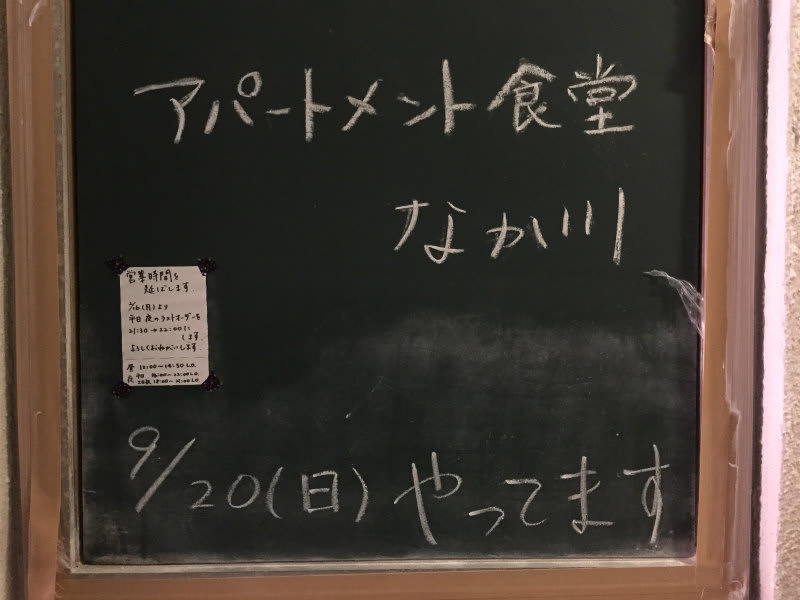 アパートメント食堂
なか川
営業時間を
延ばします.
(月)より
平日夜のラストオーダーを
21:30→22:00に
します.
よろしくおねがいします.
昼 12:00〜14:30 L.O.
夜 平日 18:00〜22:00 L.O.
18:00〜21:00 L.O.
9/20(日)やってます